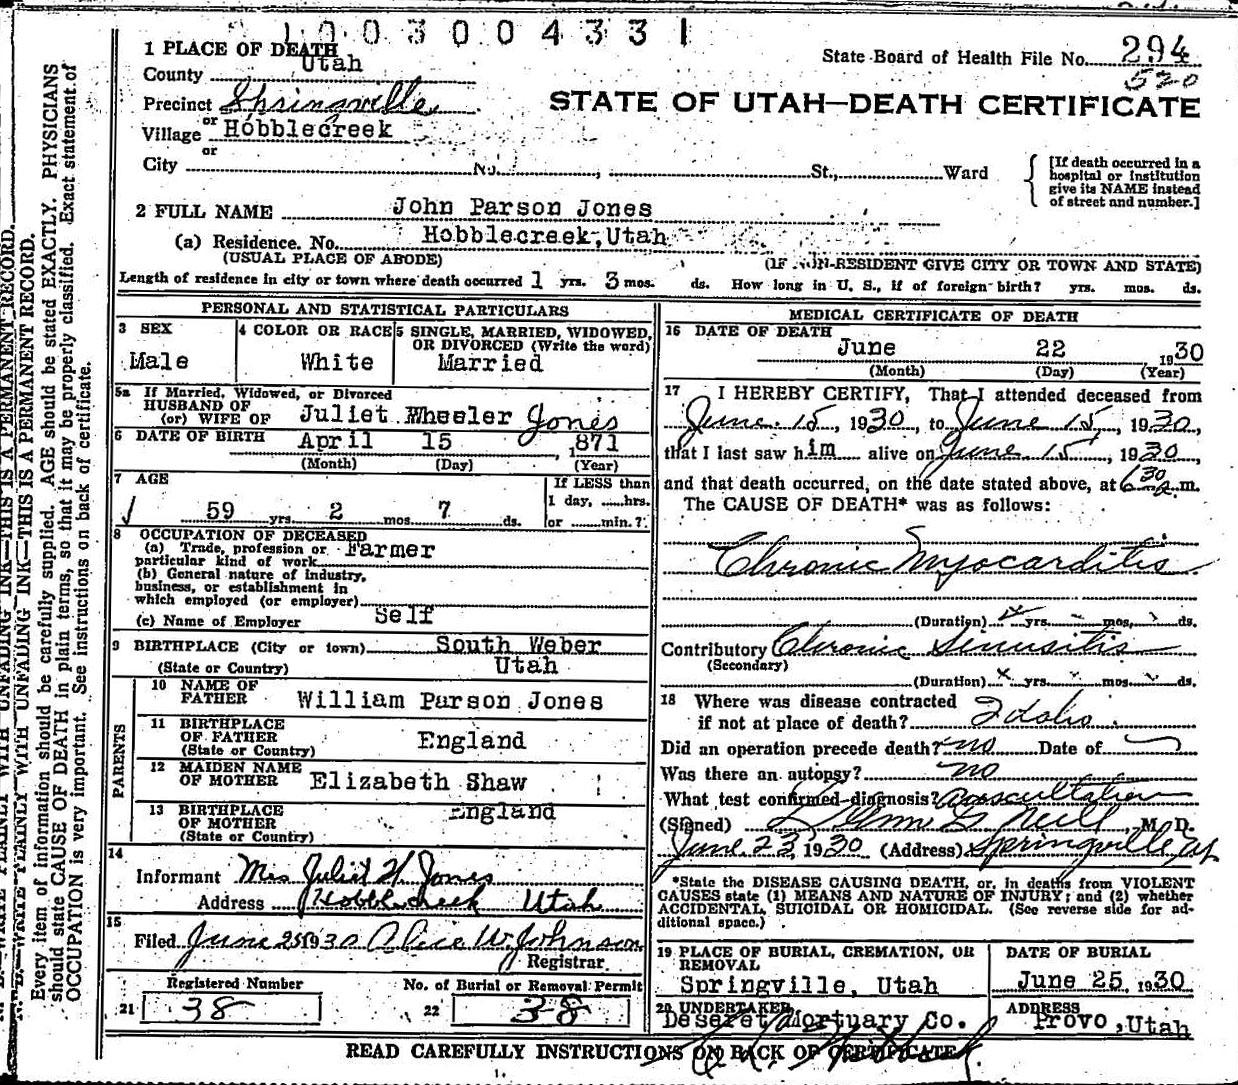 1003004331
1 PLACE OF DEATH
State Board of Health File No. 294
County Utah
520
Precinct Springville
STATE OF UTAH—DEATH CERTIFICATE
or
Village Hobblecreek
or
City No. , St., Ward
[If death occurred in a
hospital or institution
give its NAME instead
of street and number.]
2 FULL NAME John Parson Jones
(a) Residence. No. Hobblecreek, Utah
(USUAL PLACE OF ABODE) (IF NON-RESIDENT GIVE CITY OR TOWN AND STATE)
Length of residence in city or town where death occurred 1 yrs. 3 mos. ds. How long in U. S., if of foreign birth? yrs. mos. ds.
PERSONAL AND STATISTICAL PARTICULARS
3 SEX
Male
4 COLOR OR RACE
White
5 SINGLE, MARRIED, WIDOWED,
OR DIVORCED (Write the word)
Married
5a If Married, Widowed, or Divorced
HUSBAND OF
(or) WIFE OF Juliet Wheeler Jones
6 DATE OF BIRTH April 15, 1871
(Month) (Day) (Year)
7 AGE
59 yrs. 2 mos. 7 ds.
If LESS than
1 day, hrs.
or min.?
8 OCCUPATION OF DECEASED
(a) Trade, profession or Farmer
particular kind of work
(b) General nature of industry,
business, or establishment in
which employed (or employer)
(c) Name of Employer Self
9 BIRTHPLACE (City or town) South Weber
(State or Country) Utah
PARENTS
10 NAME OF
FATHER William Parson Jones
11 BIRTHPLACE
OF FATHER England
(State or Country)
12 MAIDEN NAME
OF MOTHER Elizabeth Shaw
13 BIRTHPLACE
OF MOTHER England
(State or Country)
14
Informant Mrs Juliet W. Jones
Address Hobblecreek Utah
15
Filed June 25 1930 Alice W. Johnson
Registrar
Registered Number
21 38
No. of Burial or Removal Permit
22 38
MEDICAL CERTIFICATE OF DEATH
16 DATE OF DEATH
June 22 1930
(Month) (Day) (Year)
17 I HEREBY CERTIFY, That I attended deceased from
June 15, 1930, to June 15, 1930,
that I last saw him alive on June 15, 1930,
and that death occurred, on the date stated above, at 6 30 a m.
The CAUSE OF DEATH* was as follows:
Chronic Myocarditis
(Duration) yrs. mos. ds.
Contributory Chronic Sinusitis
(Secondary)
(Duration) x yrs. mos. ds.
18 Where was disease contracted
if not at place of death? Idaho
Did an operation precede death? no Date of
Was there an autopsy? no
What test confirmed diagnosis? Auscultation
(Signed) G Neill, M. D.
June 23, 1930 (Address) Springville Ut
*State the DISEASE CAUSING DEATH, or, in deaths from VIOLENT
CAUSES state (1) MEANS AND NATURE OF INJURY; and (2) whether
ACCIDENTAL, SUICIDAL OR HOMICIDAL. (See reverse side for ad-
ditional space.)
19 PLACE OF BURIAL, CREMATION, OR
REMOVAL
Springville, Utah
DATE OF BURIAL
June 25, 1930
20 UNDERTAKER
Deseret Mortuary Co.
ADDRESS
Provo, Utah
READ CAREFULLY INSTRUCTIONS ON BACK OF CERTIFICATE
N. B.—WRITE PLAINLY WITH UNFADING INK—THIS IS A PERMANENT RECORD.
Every item of information should be carefully supplied. AGE should be stated EXACTLY. PHYSICIANS
should state CAUSE OF DEATH in plain terms, so that it may be properly classified. Exact statement of
OCCUPATION is very important. See instructions on back of certificate.